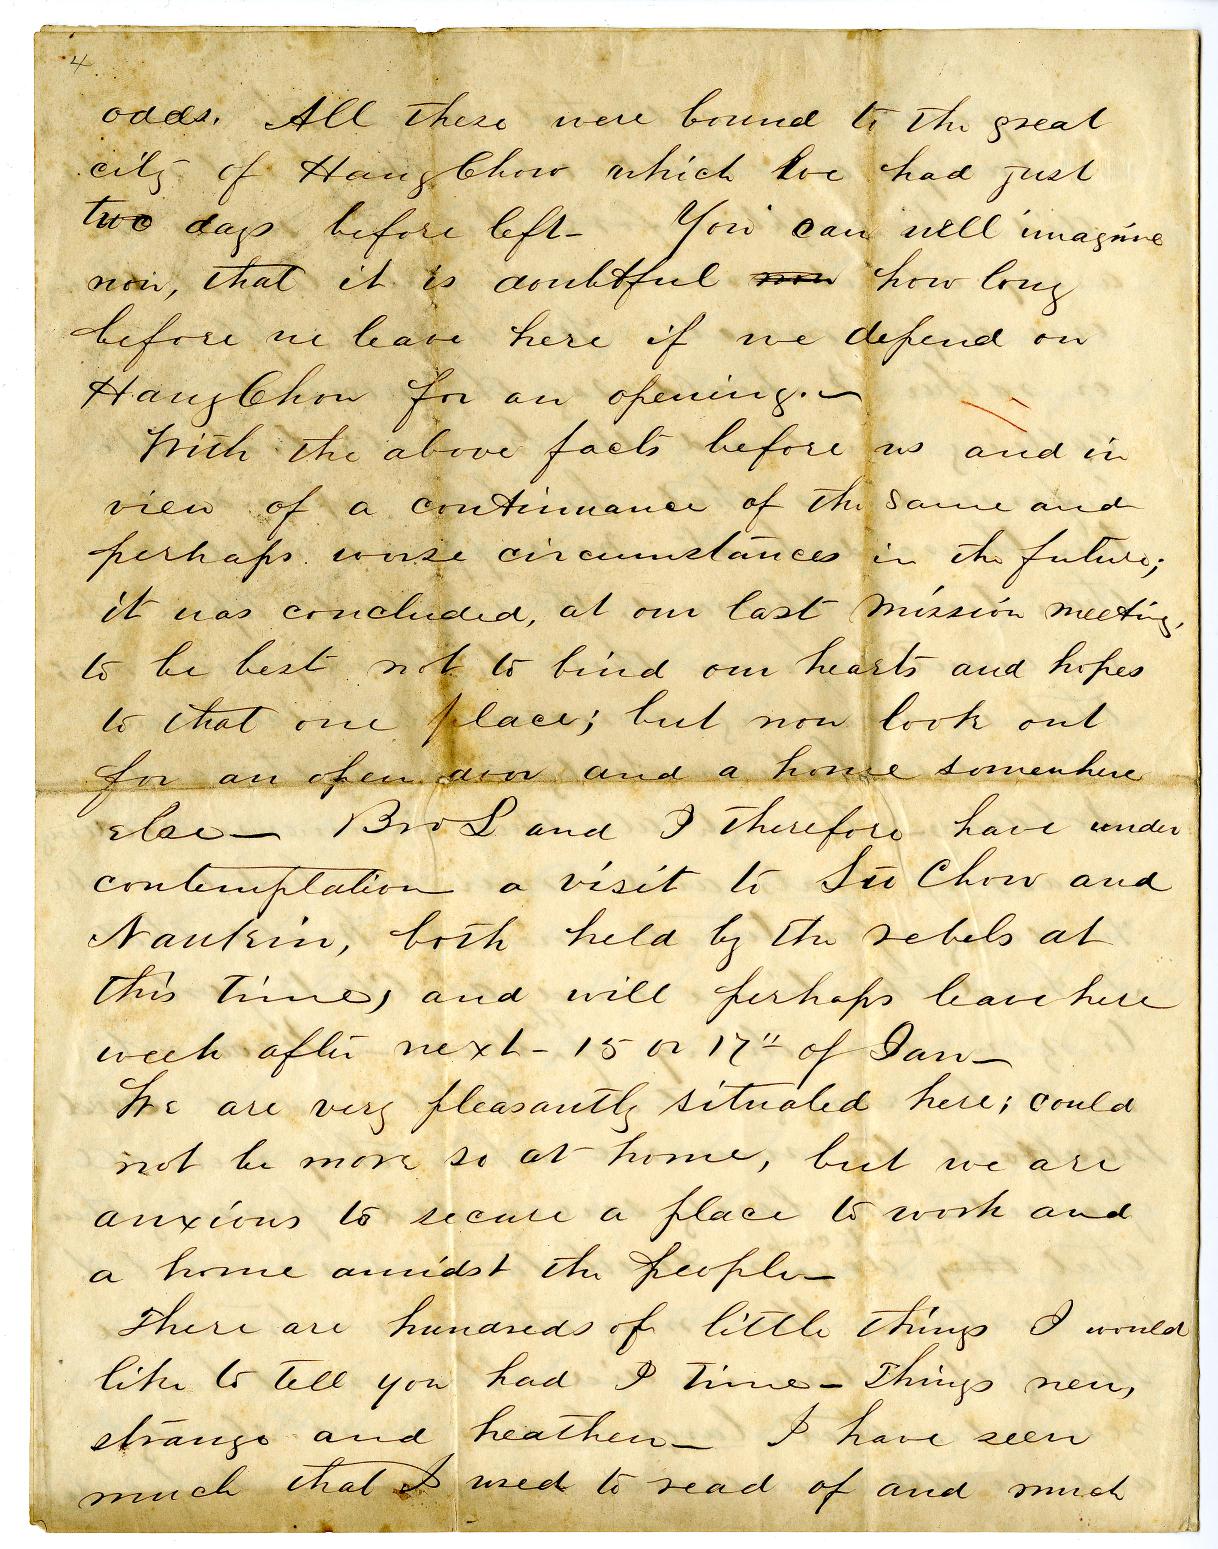 4
odds. All these were bound to the great
city of HangChow which we had just
two days before left - You can well imagine
now, that it is doubtful now how long
before we leave here if we depend on
HangChow for an opening. -
With the above facts before us and in
view of a continuance of the same and
perhaps worse circumstances in the future;
it was concluded, at our last Mission meeting,
to be best not to bind our hearts and hopes
to that one place; but now look out
for an open door and a home somewhere
else - Bro L and I therefore have under
contemplation a visit to Su Chow and
Nankin, both held by the rebels at
this time, and will perhaps leave here
week after next - 15 or 17" of Jan -
We are very pleasantly situated here; could
not be more so at home, but we are
anxious to secure a place to work and
a home amidst the people -
There are hundreds of little things I would
like to tell you had I time - Things new,
strange and heathen - I have seen
much that I used to read of and much